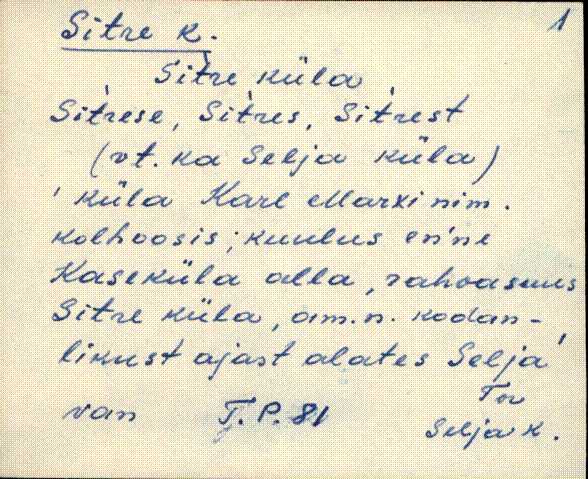 1
Sitre k.
Si`tre küla
Si`trese, Si`tres, Si`trest
(vt. ka Selja küla)
' küla Karl Marxi nim.
kolhoosis; kuulus en'ne
Kaseküla alla, rahvasuus
Sitre küla, am.n. kodan-
likust ajast alates Selja
van T.P. 81
Tor
Selja k.